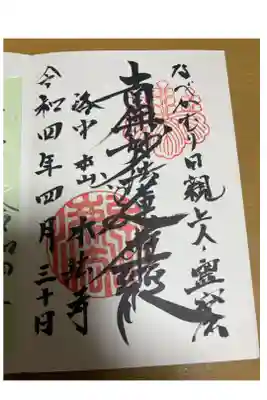 なべかむり日親上人霊窟
南無妙法蓮華経
洛中 本山 本法寺
令和四年四月三十日